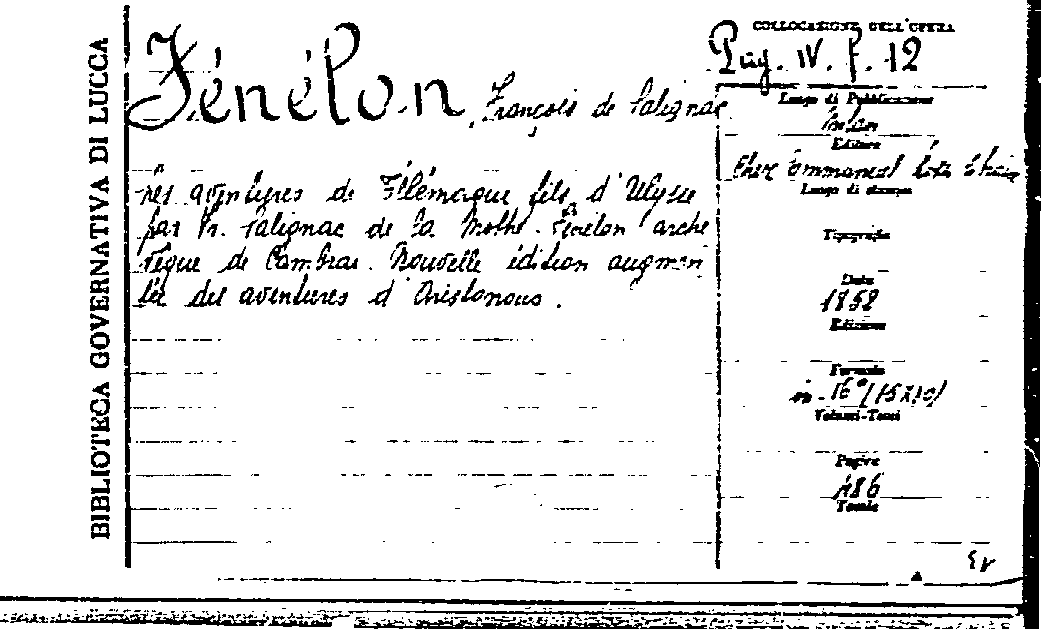 BIBLIOTECA GOVERNATIVA DI LUCCA
Fénélon, François de Salignac
Les aventures de Télémaque fils d'Ulysse
par Fr. Salignac de la Mothe-Fénélon arche
vêque de Cambrai. Nouvelle édition augmen
tée des aventures d'Aristonous.
COLLOCAZIONE DELL'OPERA
Pug. IV. f. 12
Luogo di Pubblicazione
Milan
Editore
Chez Emmanuel
Luogo di stampa
Tipografia
Data
1852
Edizione
Formato
in-16° (15x10)
Volumi-Tomi
Pagine
486
Tavole